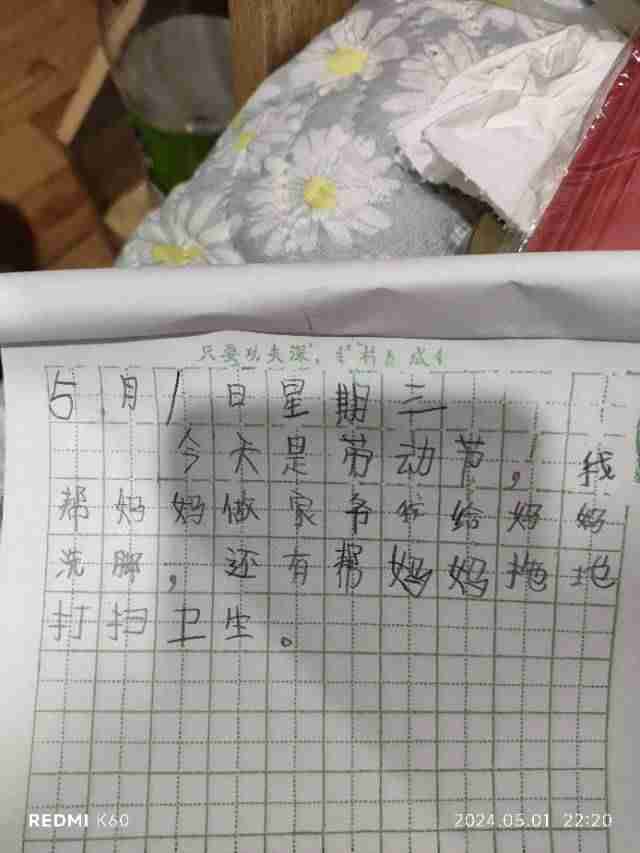 只要功夫深，
5月1日星期三
今天是劳动节，我
帮妈妈做家务 给妈妈
洗脚，还有帮妈妈拖地
打扫卫生。
REDMI K60
2024.05.01 22:20